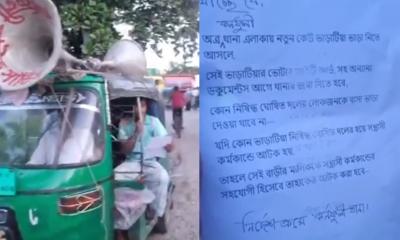 কর্ণফুলী
অত্র থানা এলাকায় নতুন কেউ ভাড়াটিয়া ভাড়া নিতে
আসলে,
সেই ভাড়াটিয়ার ভোটার আইডি কার্ড সহ অন্যান্য
ডকুমেন্টস আগে থানায় জমা দিতে হবে,
কোন নিষিদ্ধ ঘোষিত দলের লোকজনকে বাসা ভাড়া
দেওয়া যাবে না...
যদি কোন ভাড়াটিয়া নিষিদ্ধ ঘোষিত দলের হয়ে সন্ত্রাসী
কর্মকান্ডে আটক হয়,
তাহলে সেই বাড়ীর মালিককে সন্ত্রাসী কর্মকান্ডের
সহযোগী হিসেবে তাহাকেও আটক করা হবে-
নির্দেশ ক্রমে কর্ণফুলী থানা।